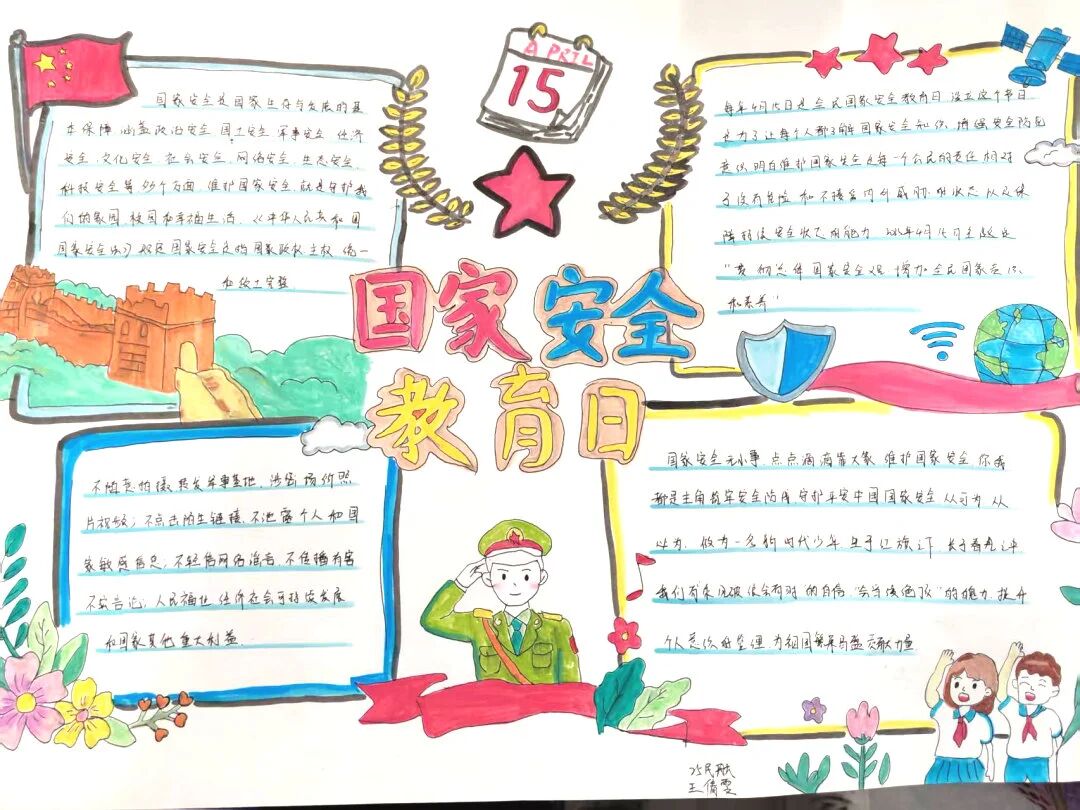 APRIL
15
国家安全
教育日
国家安全是国家生存与发展的基
本保障,涵盖政治安全、国土安全、军事安全、经济
安全、文化安全、社会安全、网络安全、生态安全、
科技安全等 多个方面,维护国家安全,就是守护我
们的家园、校园和幸福生活。《中华人民共和国
国家安全法》 国家安全是指国家政权、主权、统一
和领土完整
每年4月15日是全民国家安全教育日,设立这个节日
是为了让每个人都了解国家安全知识,增强安全防范
意识,明白维护国家安全是每一个公民的责任,相对
于没有危险和不受内外威胁的状态,以及保
障持续安全状态的能力 4月15日主题是
"贯彻总体国家安全观 增加全民国家意识
和素养"
不随意拍摄、 军事基地、涉密场所照
片视频;不点击陌生链接、不泄露个人和国
家敏感信息,不轻信网络谣言、不传播有害
不实言论,人民福祉、经济社会可持续发展
和国家其他重大利益.
国家安全无小事,点点滴滴靠大家,维护国家安全,你我
都是主角,筑牢安全防线,守护平安中国,国家安全,从 为,从
为,做为一名新时代少年,生于红旗下,长于春风里
我们有 的自信,"会当凌绝顶"的魄力,提升
个人意识和 ,为祖国繁荣昌盛贡献力量
25民航
王倩雯